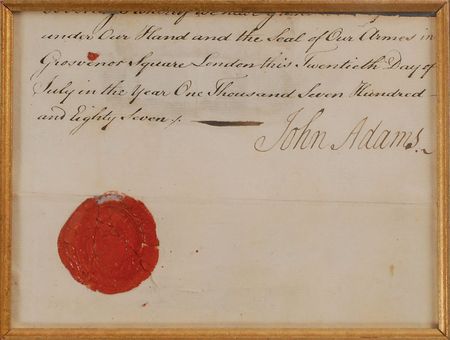 under Our Hand and the Seal of Our Armes in
Grosvenor Square London this Twentieth Day of
July in the Year One Thousand and Seven Hundred
and Eighty Seven ⁒
John Adams.